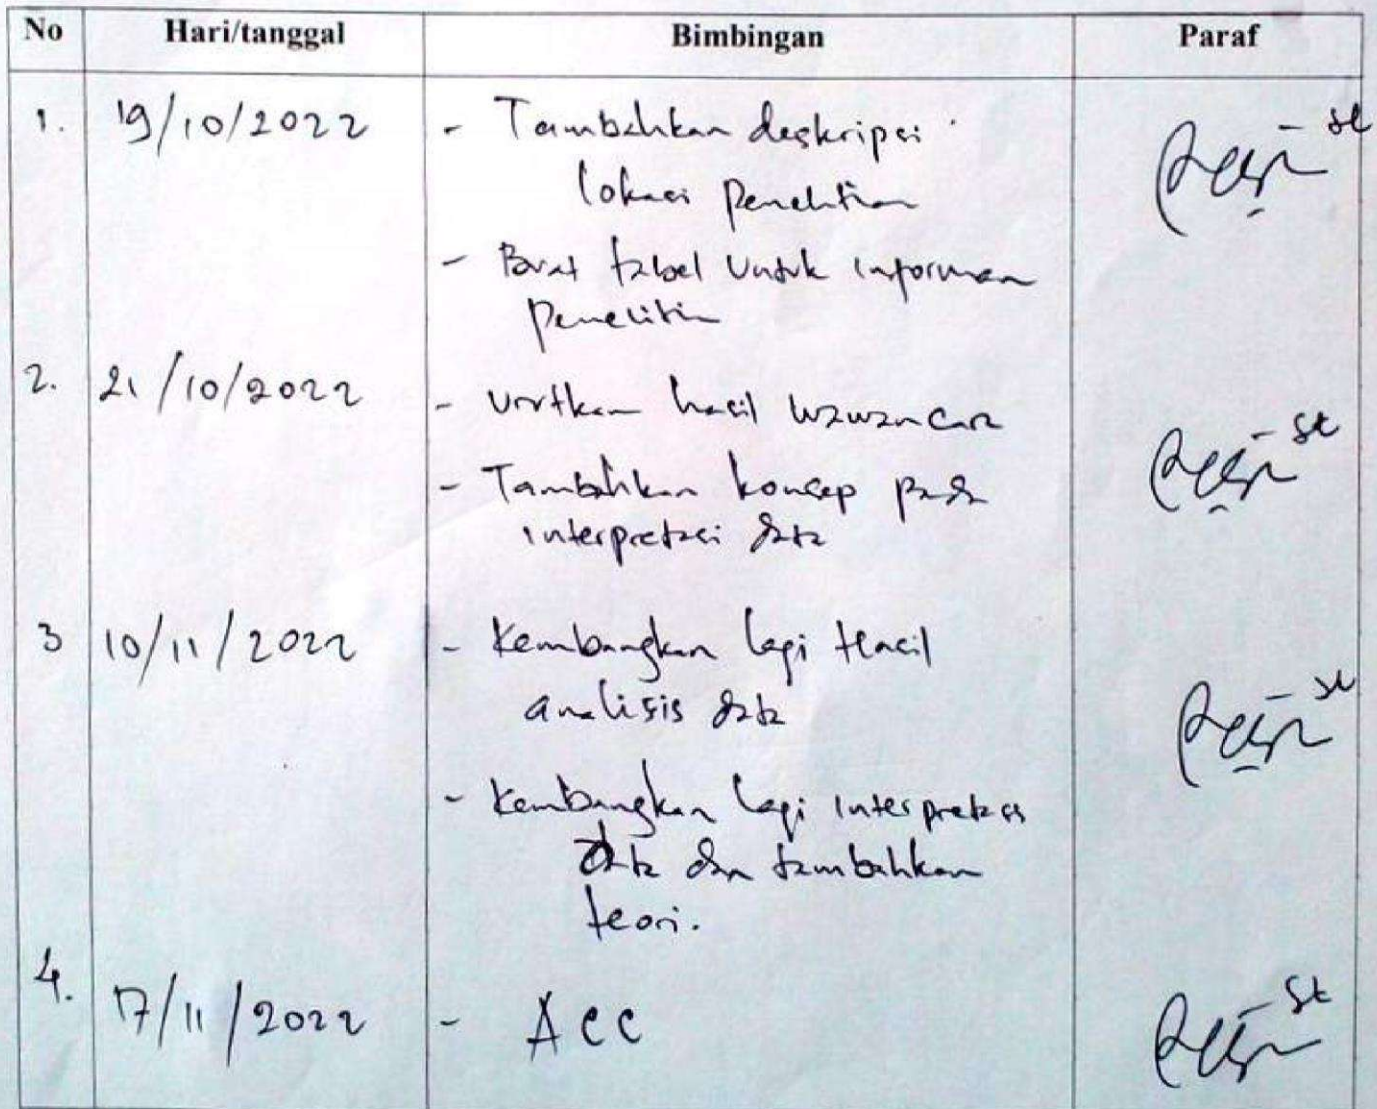 No Hari/tanggal Bimbingan Paraf
1. 19/10/2022 - Tambahkan deskripsi
lokasi penelitian
- Buat tabel untuk informan
penelitian
2. 21/10/2022 - Urutkan hasil wawancara
- Tambahkan konsep pada
interpretasi data
3 10/11/2022 - Kembangkan lagi Hasil
analisis data
- Kembangkan lagi interpretasi
data dan tambahkan
teori.
4. 17/11/2022 - ACC